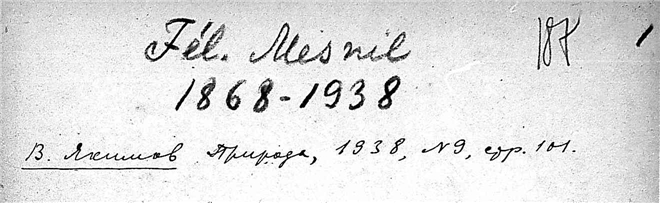 Fél. Mesnil
187 1
1868-1938
В. Якимов Природа, 1938, №9, стр. 101.